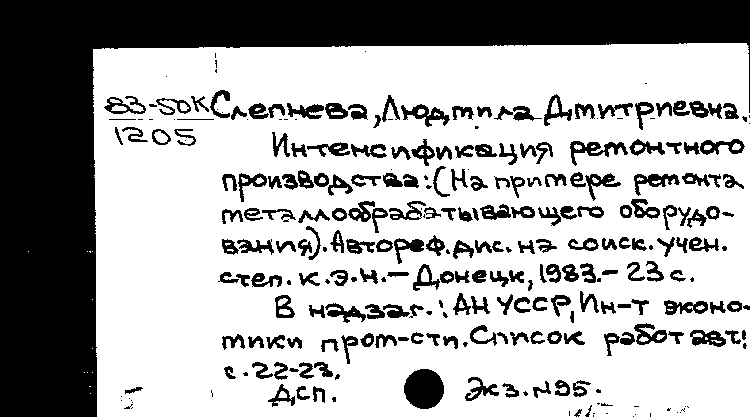 83-50К Слепнева, Людмила Дмитриевна.
1205
Интенсификация ремонтного
производства: (На примере ремонта
металлообрабатывающего оборудо-
вания). Автореф. дис. на соиск. учен.
степ. к.э.н. — Донецк, 1983. — 23 с.
В надзаг.: АН УССР, Ин-т эконо-
мики пром-сти. Список работ авт.:
с. 22-23.
Дсп. Экз. №95.